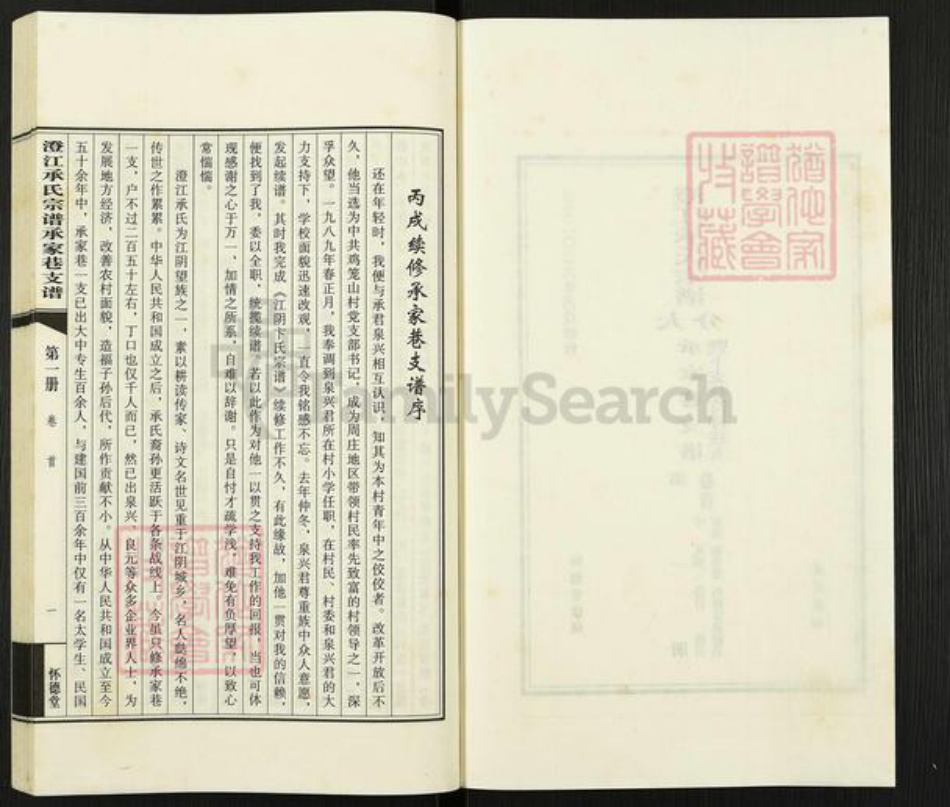 丙戌续修承家巷支谱序
还在年轻时，我便与承君泉兴相互认识，知其为本村青年中之佼佼者。改革开放后不
久，他当选为中共鸡笼山村党支部书记，成为周庄地区带领村民率先致富的村领导之一，深
孚众望。一九八九年春正月，我奉调到泉兴君所在村小学任职，在村民、村委和泉兴君的大
力支持下，学校面貌迅速改观，一直令我铭感不忘。去年仲冬，泉兴君尊重族中众人意愿，
发起续谱。其时我完成《江阴卞氏宗谱》续修工作不久，有此缘故，加他一贯对我的信赖，
便找到了我，委以全职，统揽续谱。若以此作为对他一以贯之支持我工作的回报，当也可体
现感谢之心于万一，加情之所系，自难以辞谢。只是自忖才疏学浅，难免有负厚望，以致心
常惴惴。
澄江承氏为江阴望族之一，素以耕读传家、诗文名世见重于江阴城乡，名人瓞绵不绝，
传世之作累累。中华人民共和国成立之后，承氏裔孙更活跃于各条战线上。今虽只修承家巷
一支，户不过二百五十左右，丁口也仅千人而已，然已出泉兴、良元等众多企业界人士，为
发展地方经济，改善农村面貌，造福子孙后代，所作贡献不小。从中华人民共和国成立至今
五十余年中，承家巷一支已出大中专生百余人，与建国前三百余年中仅有一名太学生、民国
澄江承氏宗谱承家巷支谱
第一册
卷首
一
怀德堂
FamilySearch